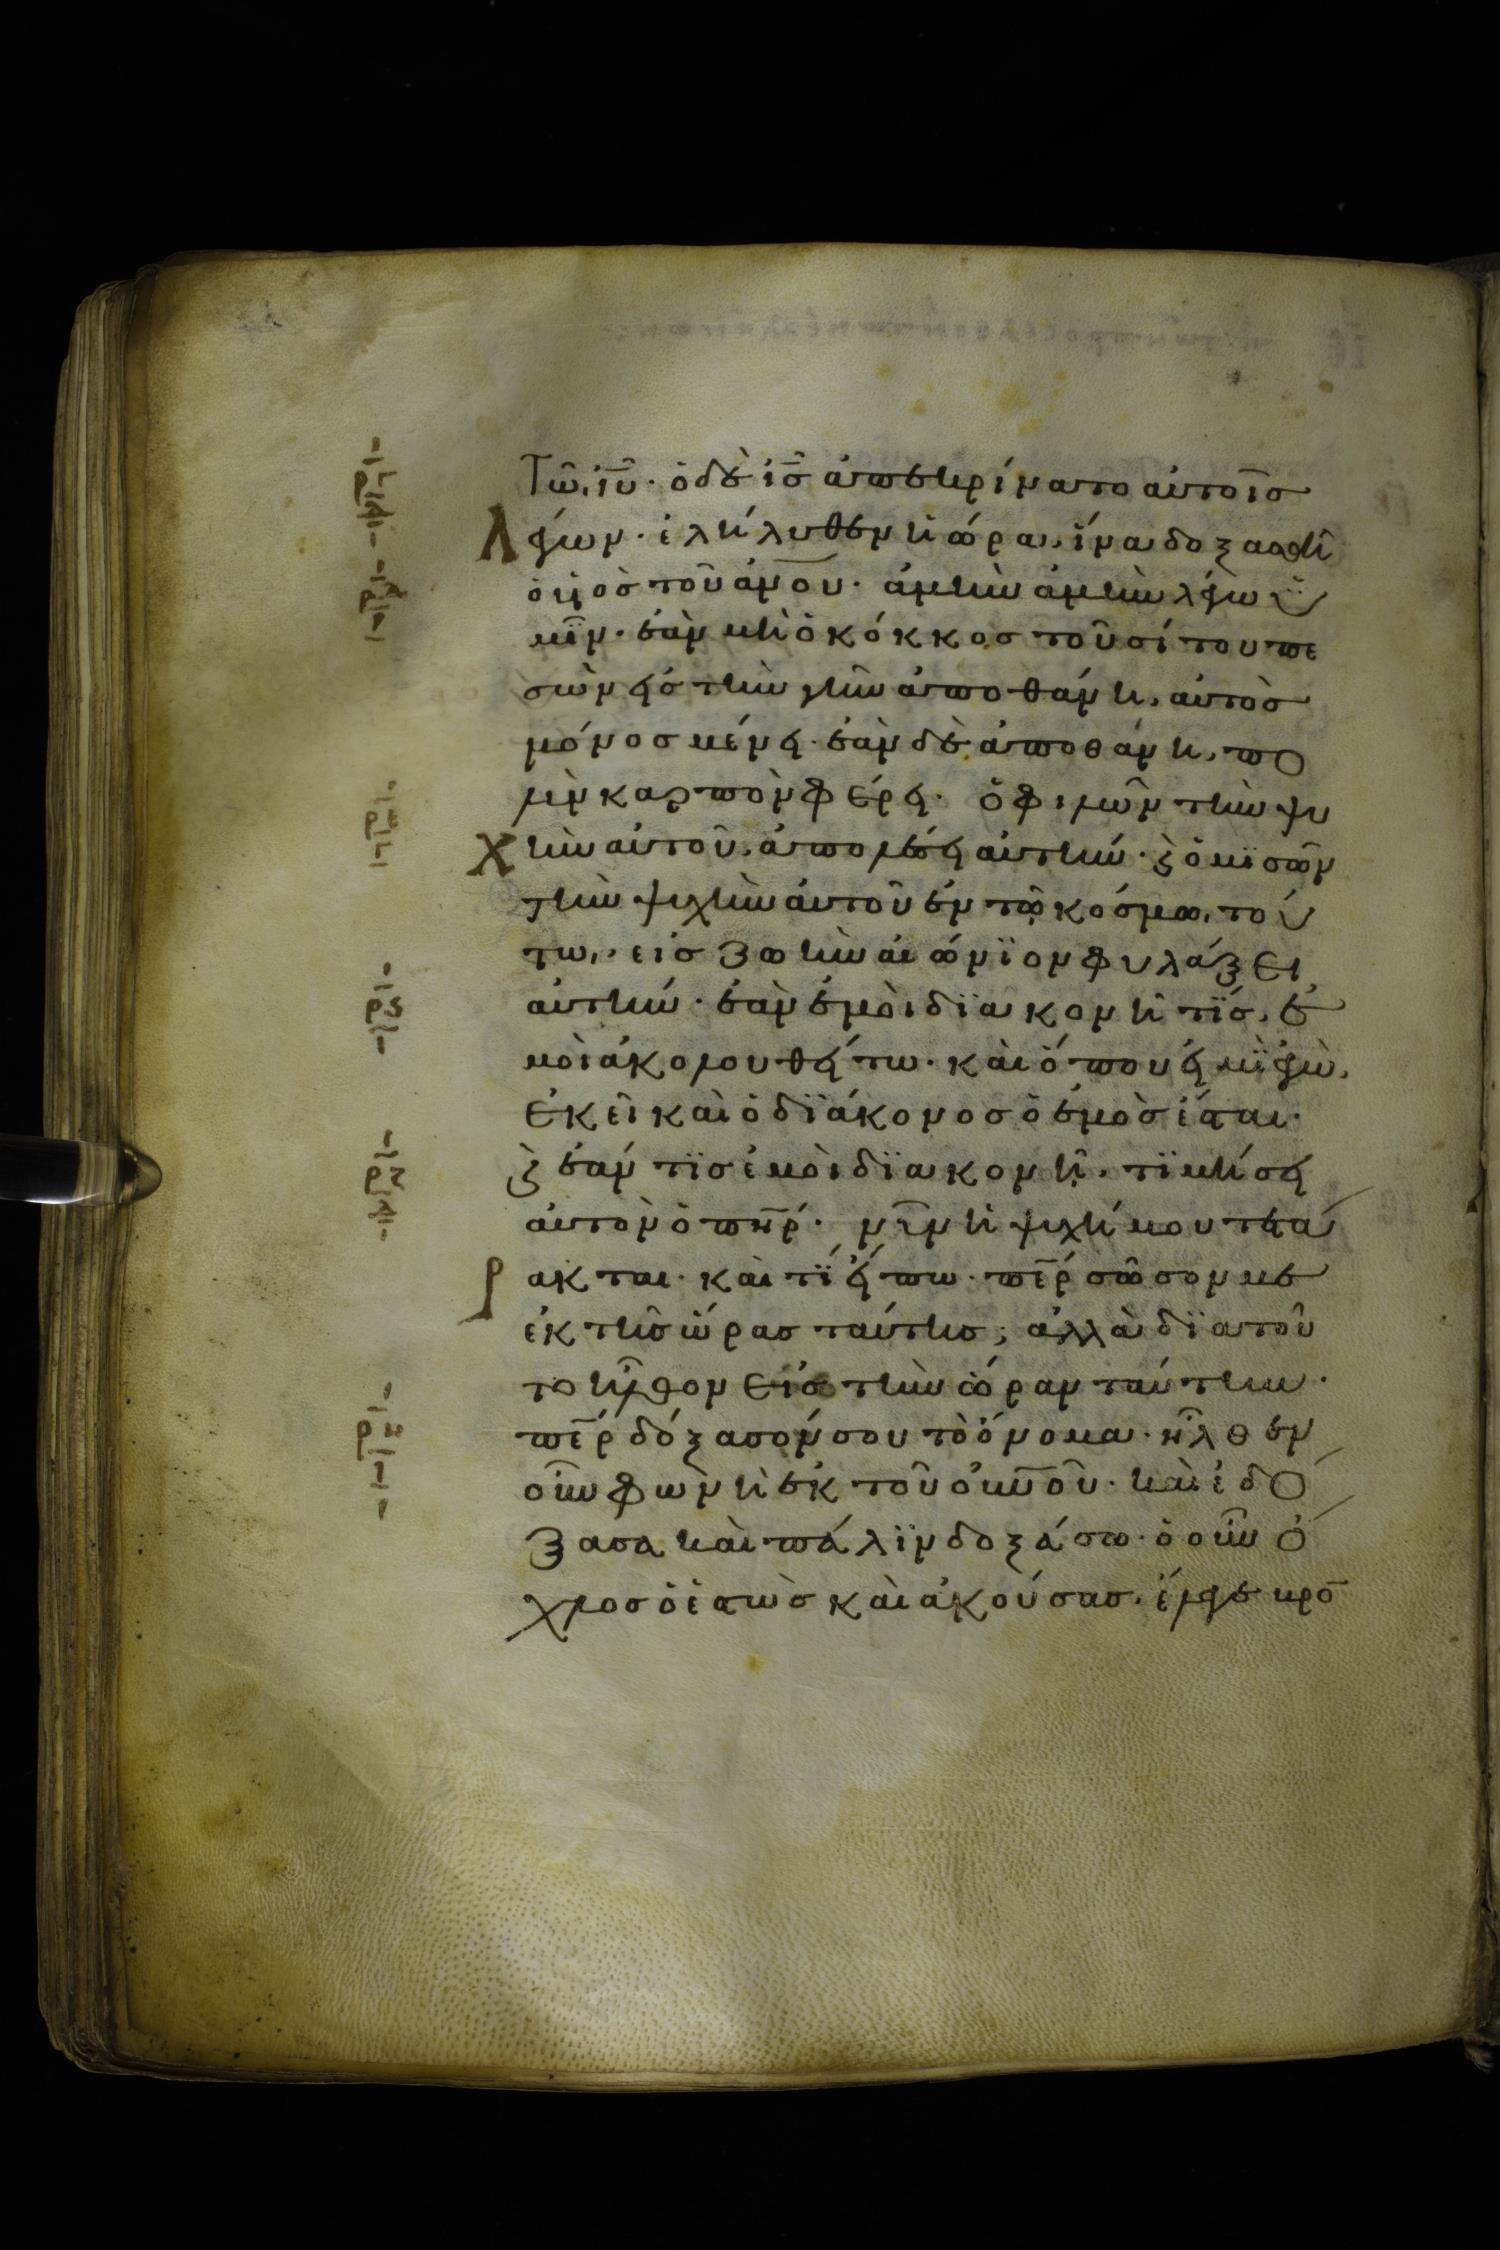 Τῶ ιῦ· ὁ δὲ ισ ἀπεκρίνατο αὐτοῖσ
λέγων· ἐλήλυθεν ἡ ὥρα, ἵνα δοξασθῆ
ὁ υἱὸσ τοῦ ἀνου· ἀμὴν ἀμὴν λέγω ὑ
μῖν· ἐὰν μὴ ὁ κόκκοσ τοῦ σίτου πε
σὼν εἰσ τὴν γῆν ἀποθάνη, αὐτὸσ
μόνοσ μένει· ἐὰν δὲ ἀποθάνη, πο
λὺν καρπὸν φέρει· ὁ φιλῶν τὴν ψυ
χὴν αὐτοῦ, ἀπολέσει αὐτήν· καὶ ὁ μισῶν
τὴν ψυχὴν αὐτοῦ ἐν τῶ κόσμω του
τω, εἰσ ζωὴν αἰώνϊον φυλάξει
αὐτήν· ἐὰν ἐμοὶ δϊακονῆ τϊσ, ἐ
μοὶ ἀκολουθείτω· καὶ ὅπου εἰμϊ ἐγὼ,
ἐκεῖ καὶ ὁ δϊάκονοσ ὁ ἐμὸσ ἔσται·
καὶ ἐάν τϊσ ἐμοὶ δϊακονῆ, τϊμήσει
αὐτὸν ὁ πηρ· νῦν ἡ ψυχή μου τετά
ρακται· καὶ τϊ εἴπω· περ σῶσον με
ἐκ τῆσ ὥρασ ταύτησ; ἀλλὰ δϊα τοῦ
το ἦλθον εἰσ τὴν ὥραν ταύτην·
περ δόξασον σου τὸ ὄνομα· ἦλθεν
οὖν φωνὴ ἐκ τοῦ οὐνου· καὶ ἐδό
ξασα καὶ πάλϊν δοξάσω· ὁ οὖν ὄ
χλοσ ὁ ἑστὼσ καὶ ἀκούσασ, ἔλεγε